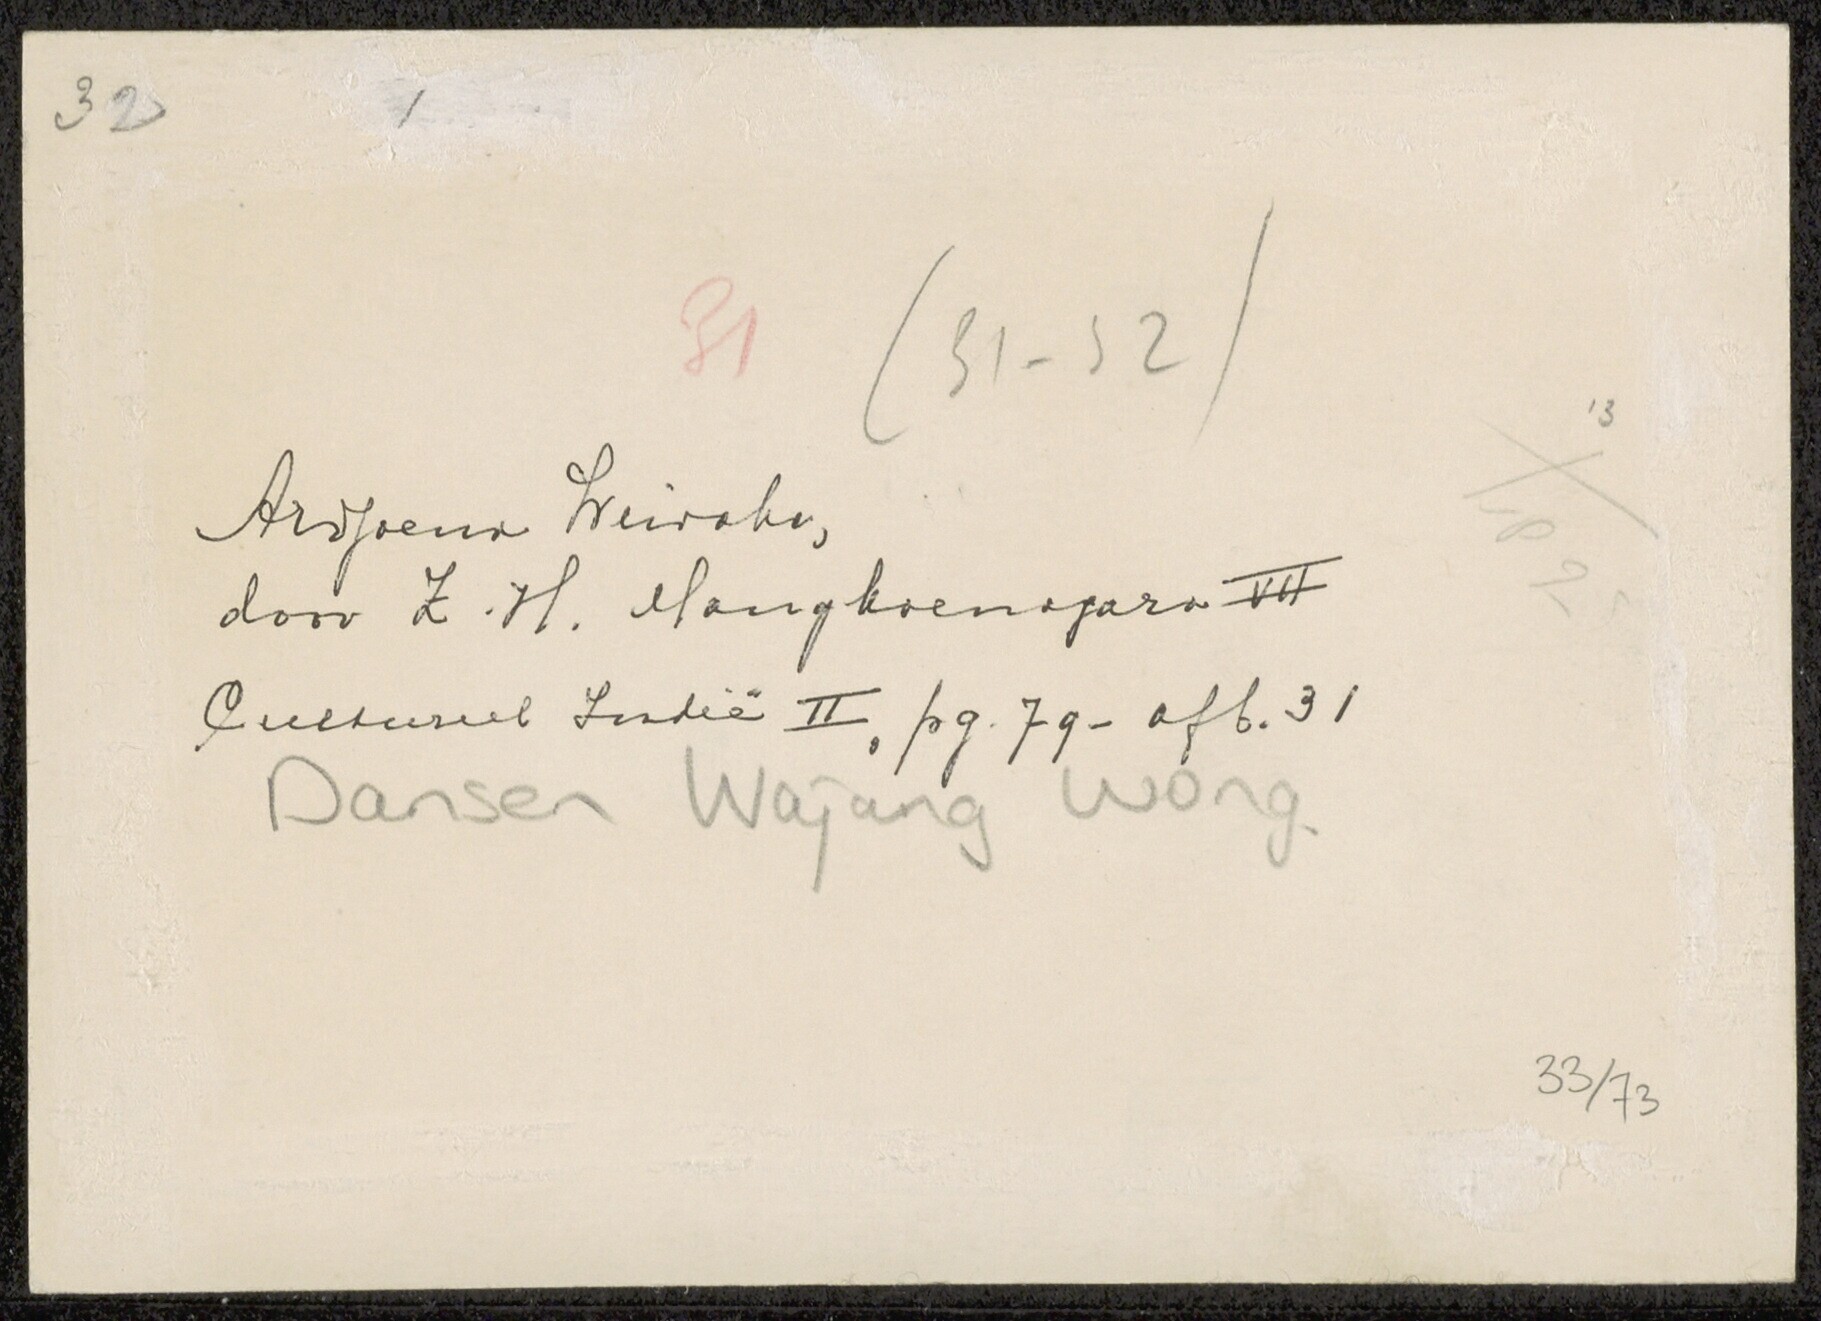 32 /
31 (31-32)
13
Ardjoena Wiwaha,
door Z. H. Mangkoenagara VII
Cultureel Indië II, pg. 79- afb. 31
Dansen Wajang wong.
33/73